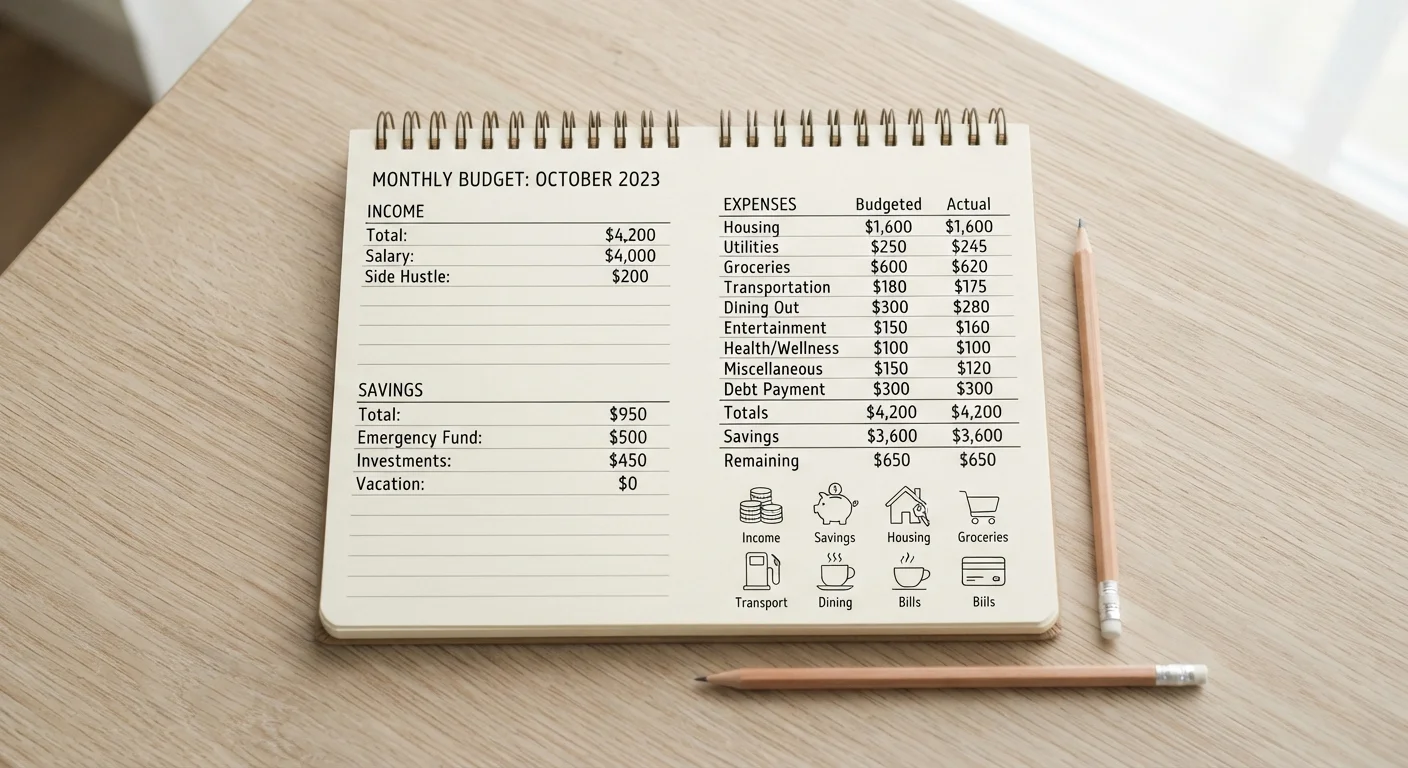 MONTHLY BUDGET: OCTOBER 2023
INCOME
Total: $4,200
Salary: $4,000
Side Hustle: $200
SAVINGS
Total: $950
Emergency Fund: $500
Investments: $450
Vacation: $0
EXPENSES Budgeted Actual
Housing $1,600 $1,600
Utilities $250 $245
Groceries $600 $620
Transportation $180 $175
Dining Out $300 $280
Entertainment $150 $160
Health/Wellness $100 $100
Miscellaneous $150 $120
Debt Payment $300 $300
Totals $4,200 $4,200
Savings $3,600 $3,600
Remaining $650 $650
Income Savings Housing Groceries
Transport Dining Bills Biils